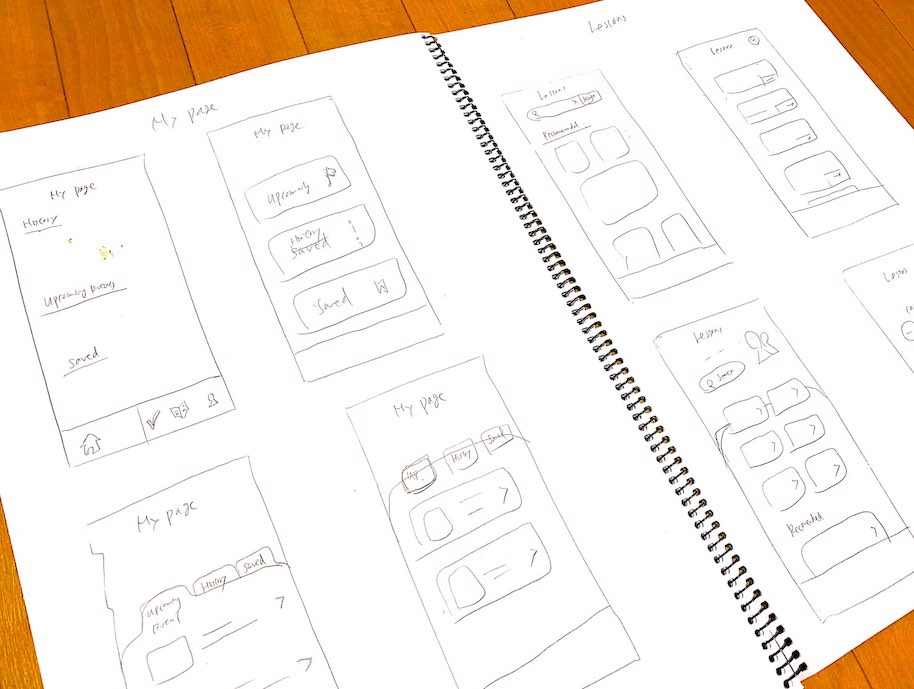 My page
My page
History
Upcoming Events
Saved
My page
Upcoming
History
Saved
Saved
My page
Upcoming
Event
History
Saved
My page
Up.
History
Saved
Lessons
Lessons
Recommended
Lessons
Lessons
Search
Lessons